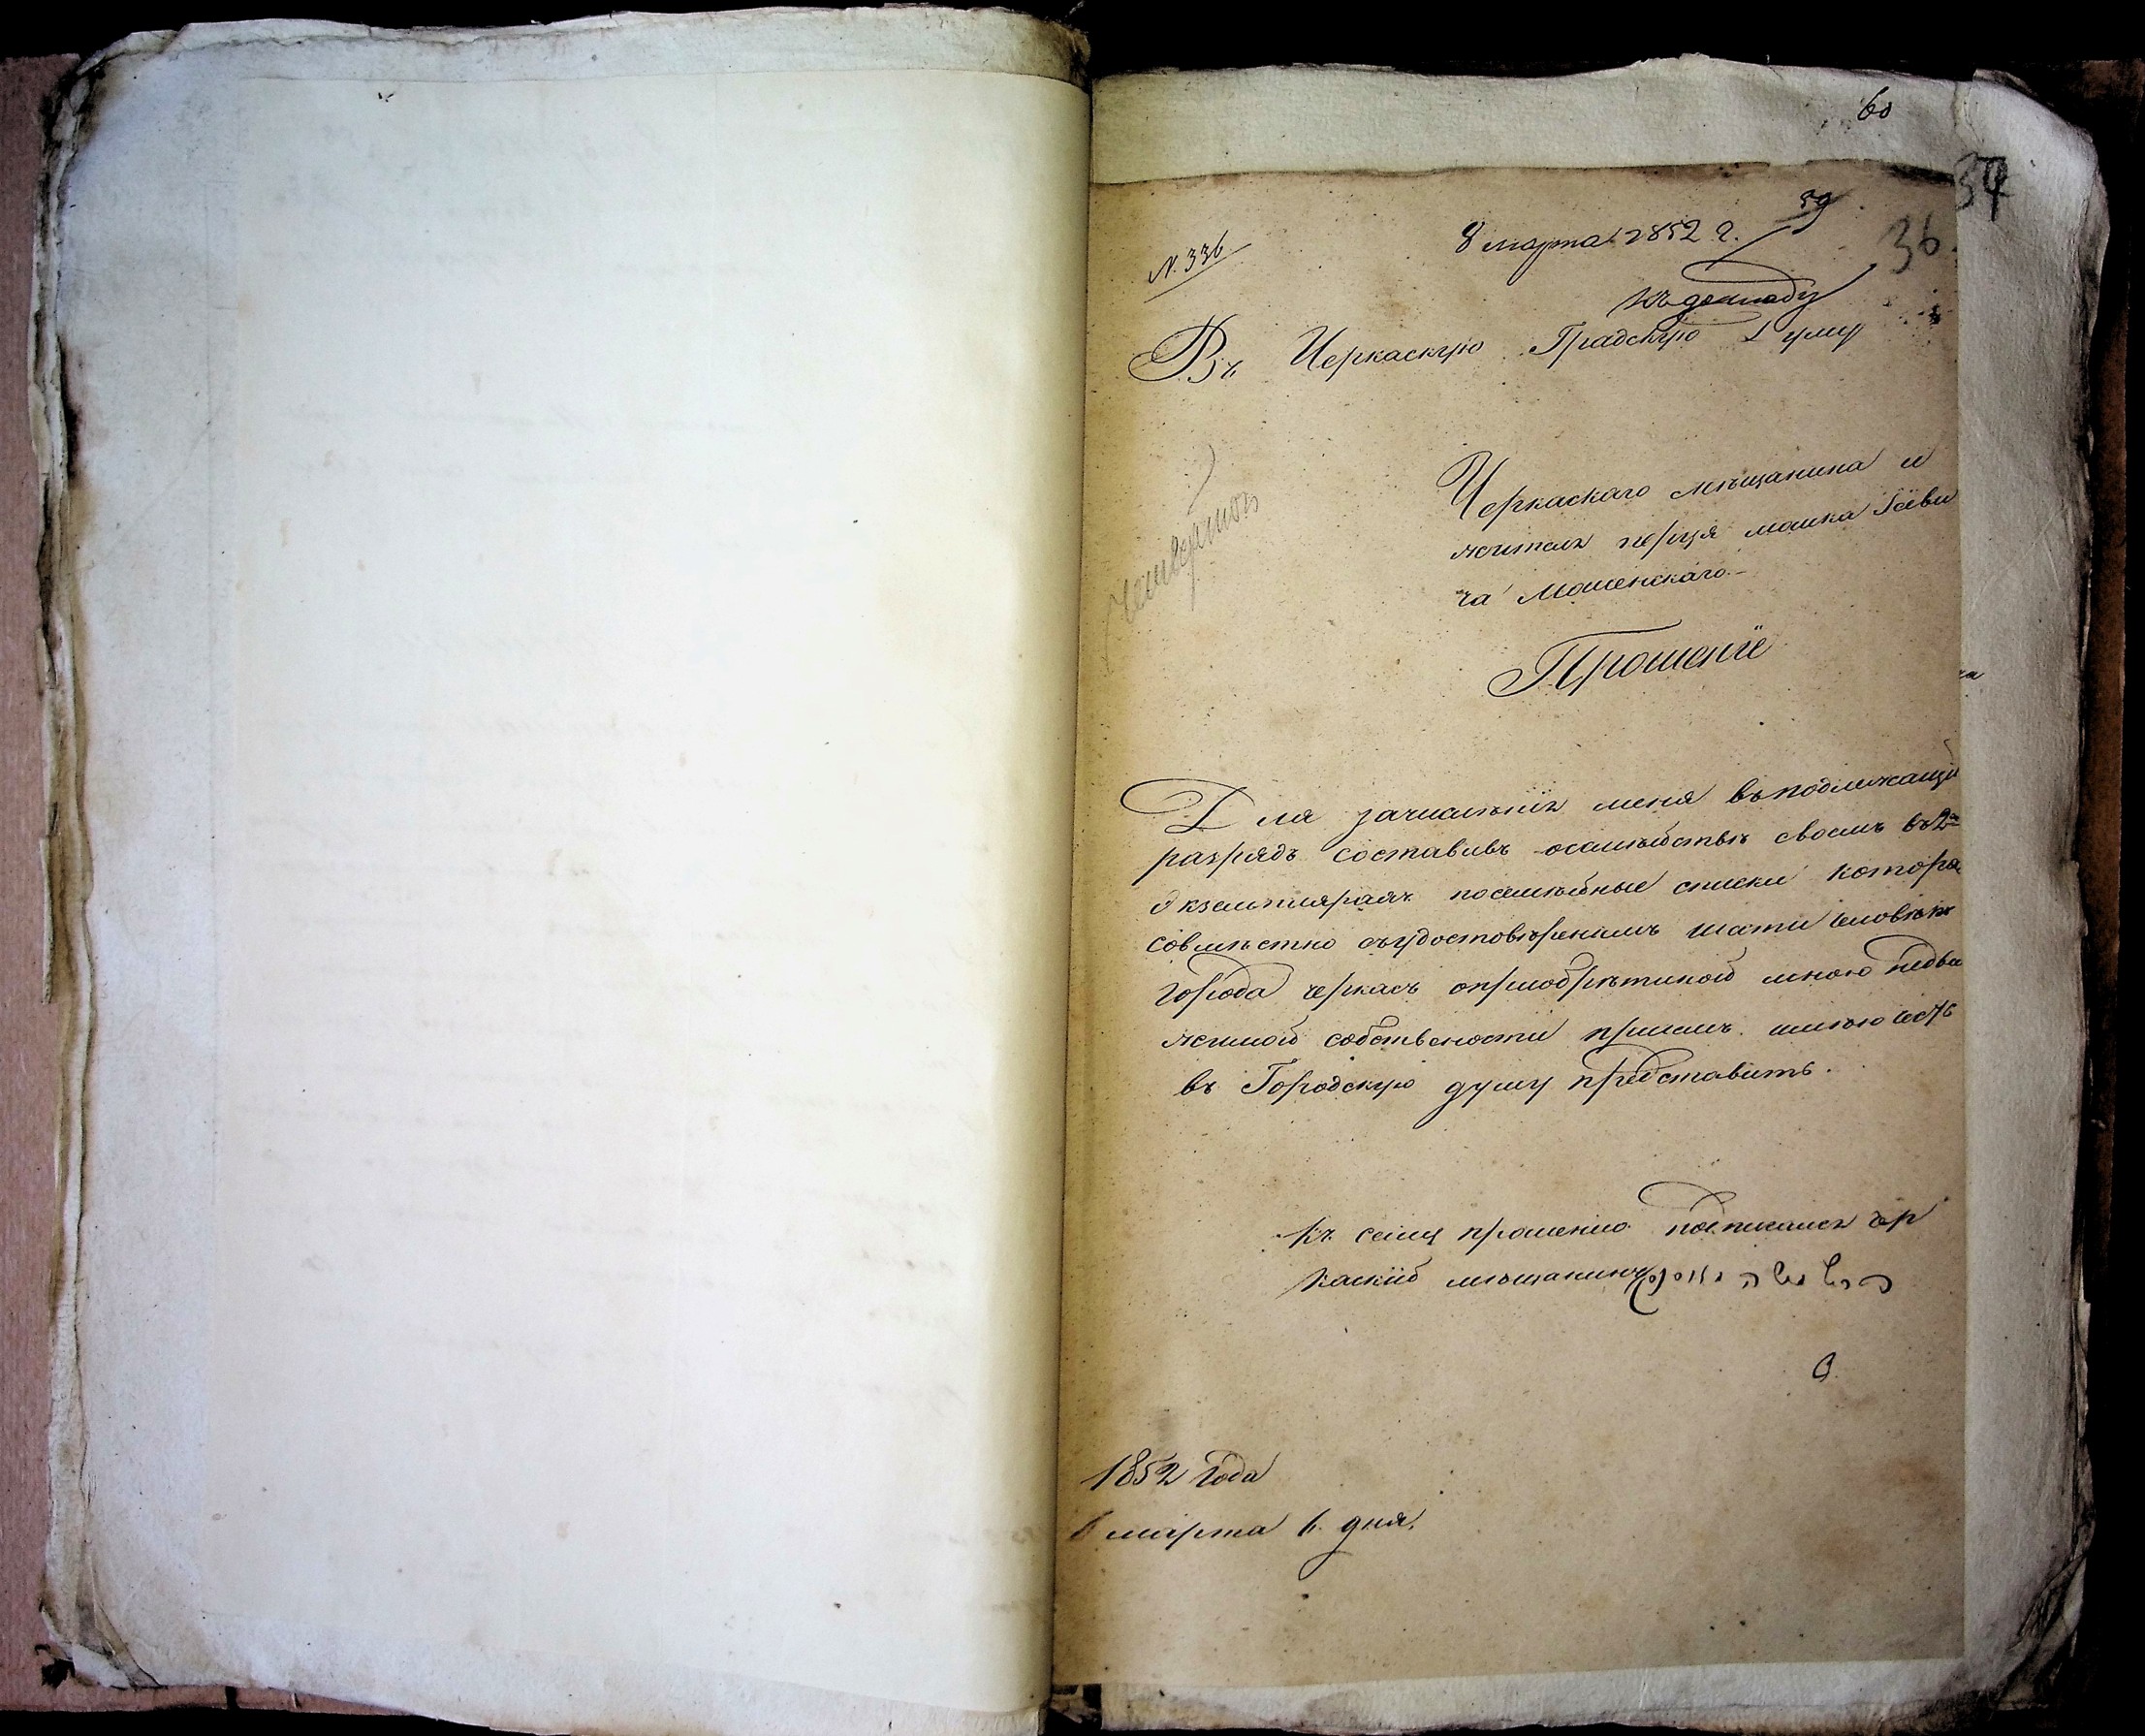 60
37
59
36.
N. 336
8 марта 1852 г.
Къ докладу
Въ Черкаскую Градскую Думу
Черкаскаго мѣщанина и
жителя герця мошка Іеви
ча Мошенскаго.
Прошеніе
Для зачисленія меня въ подлежащій
разрядъ составивъ осемѣйствѣ своемъ въ 2хъ
экземплярахъ посемѣйные списки которые
совмѣстно съ удостовѣреніемъ шести человѣкъ
города черкасъ опріобрѣтиной мною недви
жимой собствености присемъ имѣю честь
въ Городскую думу представить.
Къ сему прошенію подписался чер
каскій мѣщанинъ
1852 года
марта 6. дня.